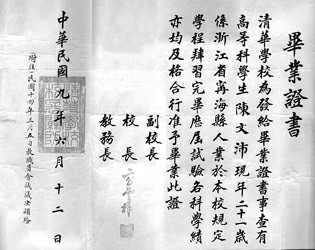 畢業證書
清華學校為發給畢業證書事查有
高等科學生陳文沛現年二十一歲
係浙江省寗海縣人業於本校規定
學程肄習完畢應屆試驗各科學績
亦均及格合行准予畢業此證
副校長
校長
教務長
中華民國九年六月十二日
附註一民國十四年三月五日經職員會議議決補給